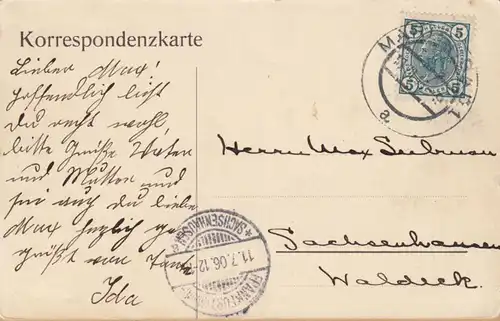 Korrespondenzkarte
Lieber Max!
hoffentlich bist
Du recht wohl,
bitte Grüße Vater
und Mutter und
sei auch du lieber
Max herzlich ge-
grüßt von Tante
Ida
5 5
5 5
Herrn Max
Sachsenhausen
Waldeck.
SACHSENHAUSEN
11.7.06.12
FRANKFURT